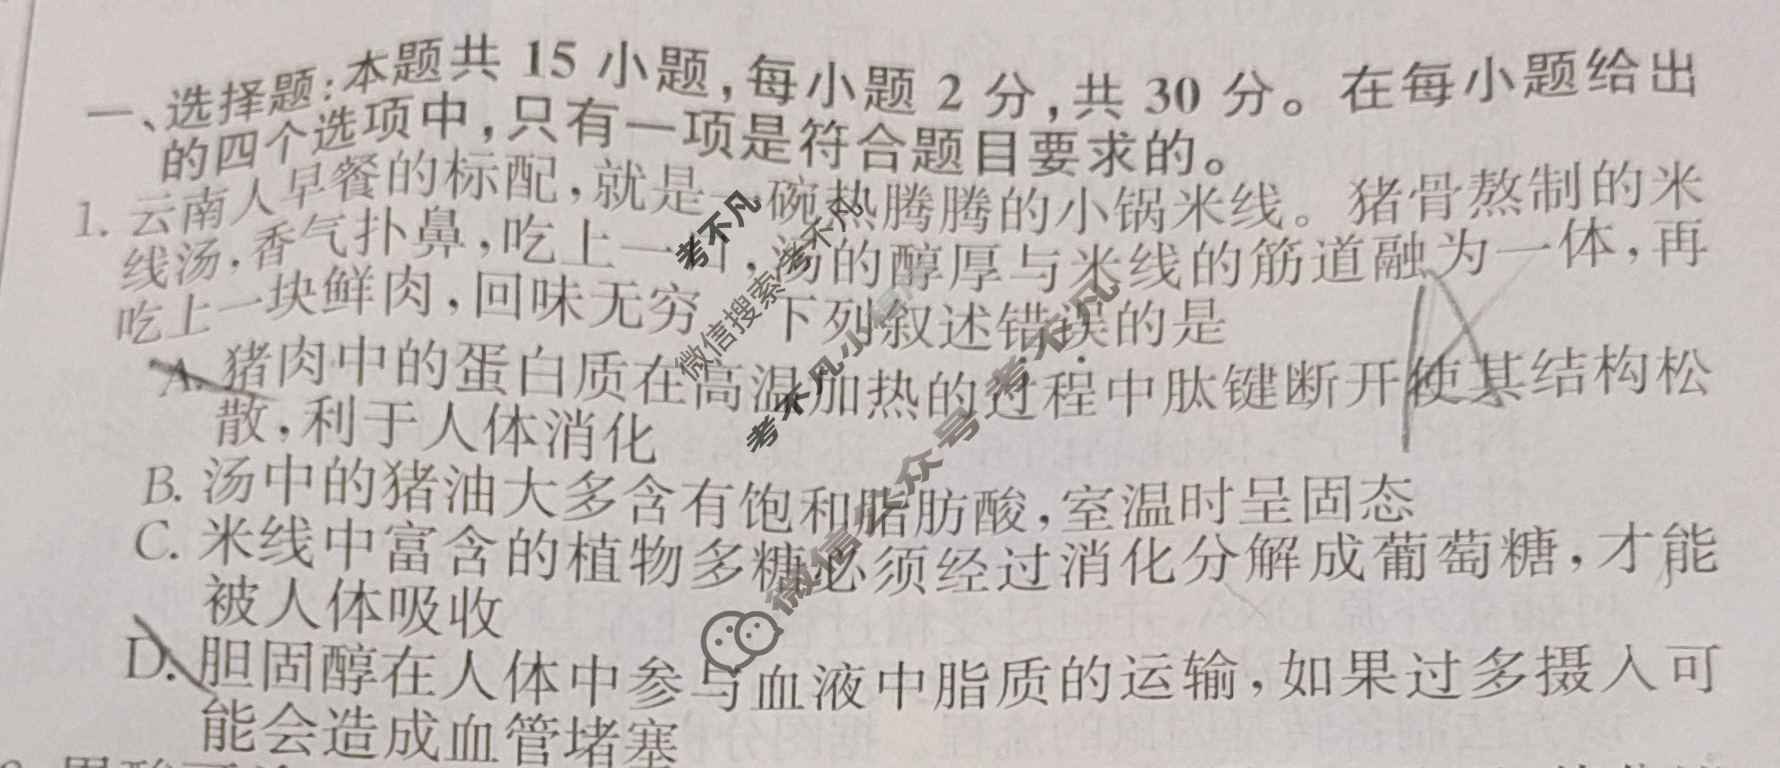 一、选择题:本题共 15 小题,每小题 2 分,共 30 分。在每小题给出
的四个选项中,只有一项是符合题目要求的。
1. 云南人早餐的标配,就是一碗热腾腾的小锅米线。猪骨熬制的米
线汤,香气扑鼻,吃上一口,汤的醇厚与米线的筋道融为一体,再
吃上一块鲜肉,回味无穷 下列叙述错误的是
A. 猪肉中的蛋白质在高温加热的过程中肽键断开使其结构松
散,利于人体消化
B. 汤中的猪油大多含有饱和脂肪酸,室温时呈固态
C. 米线中富含的植物多糖必须经过消化分解成葡萄糖,才能
被人体吸收
D. 胆固醇在人体中参与血液中脂质的运输,如果过多摄入可
能会造成血管堵塞
考不凡
微信搜索考不凡
考不凡小程序
微信公众号考不凡